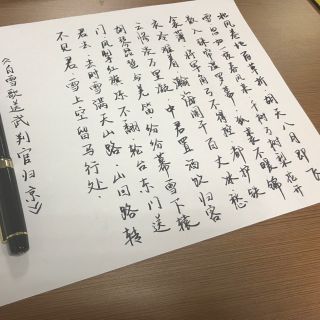 北风卷地百草折 胡天八月即飞
雪忽如一夜春风来 千树万树梨花开
散入珠帘湿罗幕狐裘不暖锦
衾薄将军角弓不得控都护铁
衣冷难着瀚海阑干百丈冰愁
云惨淡万里凝中军置酒饮归客
胡琴琵琶与羌笛纷纷暮雪下辕
门风掣红旗冻不翻轮台东门送
君去.去时雪满天山路.山回路转
不见君.雪上空留马行处.
《白雪歌送武判官归京》